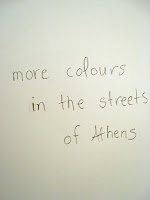 more colours
in the streets
of Athens